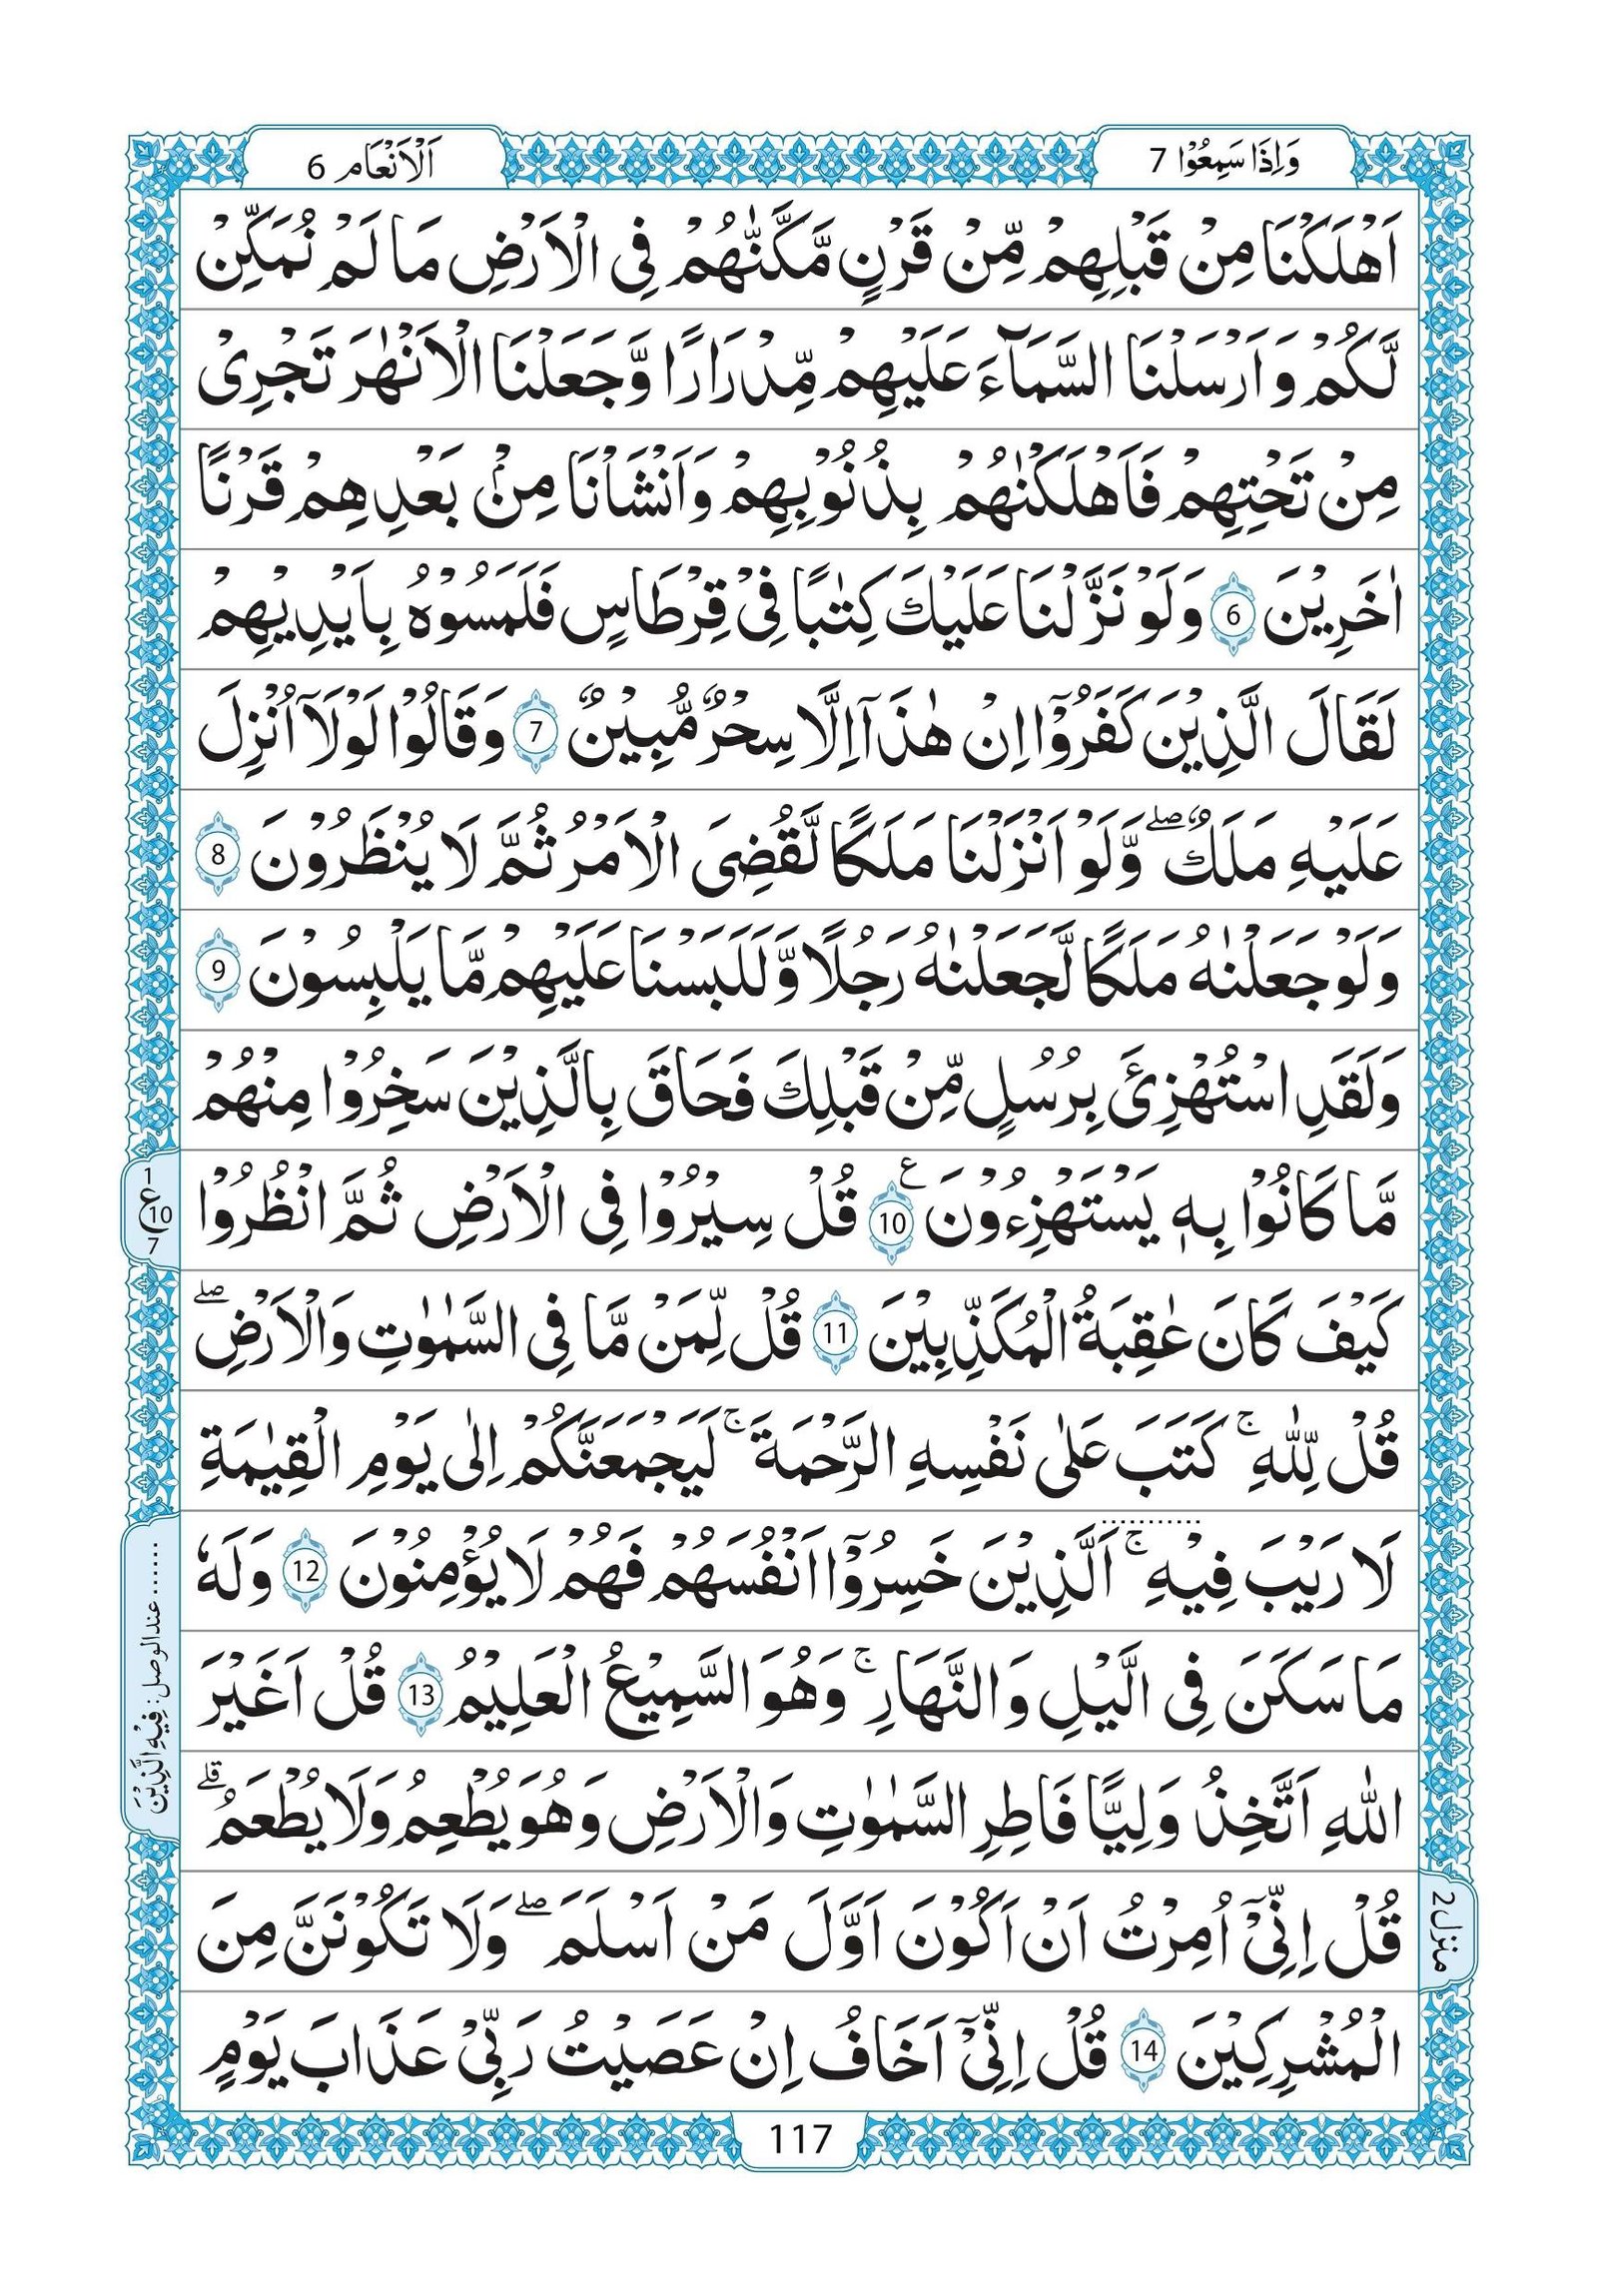 وَاِذَا سَمِعُوْا 7
اَلْاَنْعَام 6
اَهْلَكْنَا مِنْ قَبْلِهِمْ مِّنْ قَرْنٍ مَّكَّنّٰهُمْ فِى الْاَرْضِ مَا لَمْ نُمَكِّنْ
لَّكُمْ وَ اَرْسَلْنَا السَّمَآءَ عَلَيْهِمْ مِّدْرَارًا وَّجَعَلْنَا الْاَنْهٰرَ تَجْرِىْ
مِنْ تَحْتِهِمْ فَاَهْلَكْنٰهُمْ بِذُنُوْبِهِمْ وَاَنْشَاْنَا مِنْۢ بَعْدِهِمْ قَرْنًا
اٰخَرِيْنَ 6 وَلَوْ نَزَّلْنَا عَلَيْكَ كِتٰبًا فِىْ قِرْطَاسٍ فَلَمَسُوْهُ بِاَيْدِيْهِمْ
لَقَالَ الَّذِيْنَ كَفَرُوْۤا اِنْ هٰذَاۤ اِلَّا سِحْرٌ مُّبِيْنٌ 7 وَقَالُوْا لَوْلَاۤ اُنْزِلَ
عَلَيْهِ مَلَكٌ ۖ وَّلَوْ اَنْزَلْنَا مَلَكًا لَّقُضِىَ الْاَمْرُ ثُمَّ لَا يُنْظَرُوْنَ 8
وَلَوْ جَعَلْنٰهُ مَلَكًا لَّجَعَلْنٰهُ رَجُلًا وَّلَلَبَسْنَا عَلَيْهِمْ مَّا يَلْبِسُوْنَ 9
وَلَقَدِ اسْتُهْزِئَ بِرُسُلٍ مِّنْ قَبْلِكَ فَحَاقَ بِالَّذِيْنَ سَخِرُوْا مِنْهُمْ
مَّا كَانُوْا بِهٖ يَسْتَهْزِءُوْنَ ع 10 قُلْ سِيْرُوْا فِى الْاَرْضِ ثُمَّ انْظُرُوْا
1 ع 10 7
كَيْفَ كَانَ عٰقِبَةُ الْمُكَذِّبِيْنَ 11 قُلْ لِّمَنْ مَّا فِى السَّمٰوٰتِ وَالْاَرْضِ ۖ
قُلْ لِّلّٰهِ ۚ كَتَبَ عَلٰى نَفْسِهِ الرَّحْمَةَ ۚ لَيَجْمَعَنَّكُمْ اِلٰى يَوْمِ الْقِيٰمَةِ
لَا رَيْبَ فِيْهِ ۚ اَلَّذِيْنَ خَسِرُوْۤا اَنْفُسَهُمْ فَهُمْ لَا يُؤْمِنُوْنَ 12 وَلَهٗ
......عند الوصل : فِيْهِ الَّذِيْنَ
مَا سَكَنَ فِى الَّيْلِ وَالنَّهَارِ ۚ وَهُوَ السَّمِيْعُ الْعَلِيْمُ 13 قُلْ اَغَيْرَ
اللّٰهِ اَتَّخِذُ وَلِيًّا فَاطِرِ السَّمٰوٰتِ وَالْاَرْضِ وَهُوَ يُطْعِمُ وَلَا يُطْعَمُ ۗ
قُلْ اِنِّىْۤ اُمِرْتُ اَنْ اَكُوْنَ اَوَّلَ مَنْ اَسْلَمَ ۖ وَلَا تَكُوْنَنَّ مِنَ
منزل 2
الْمُشْرِكِيْنَ 14 قُلْ اِنِّىْۤ اَخَافُ اِنْ عَصَيْتُ رَبِّىْ عَذَابَ يَوْمٍ
117